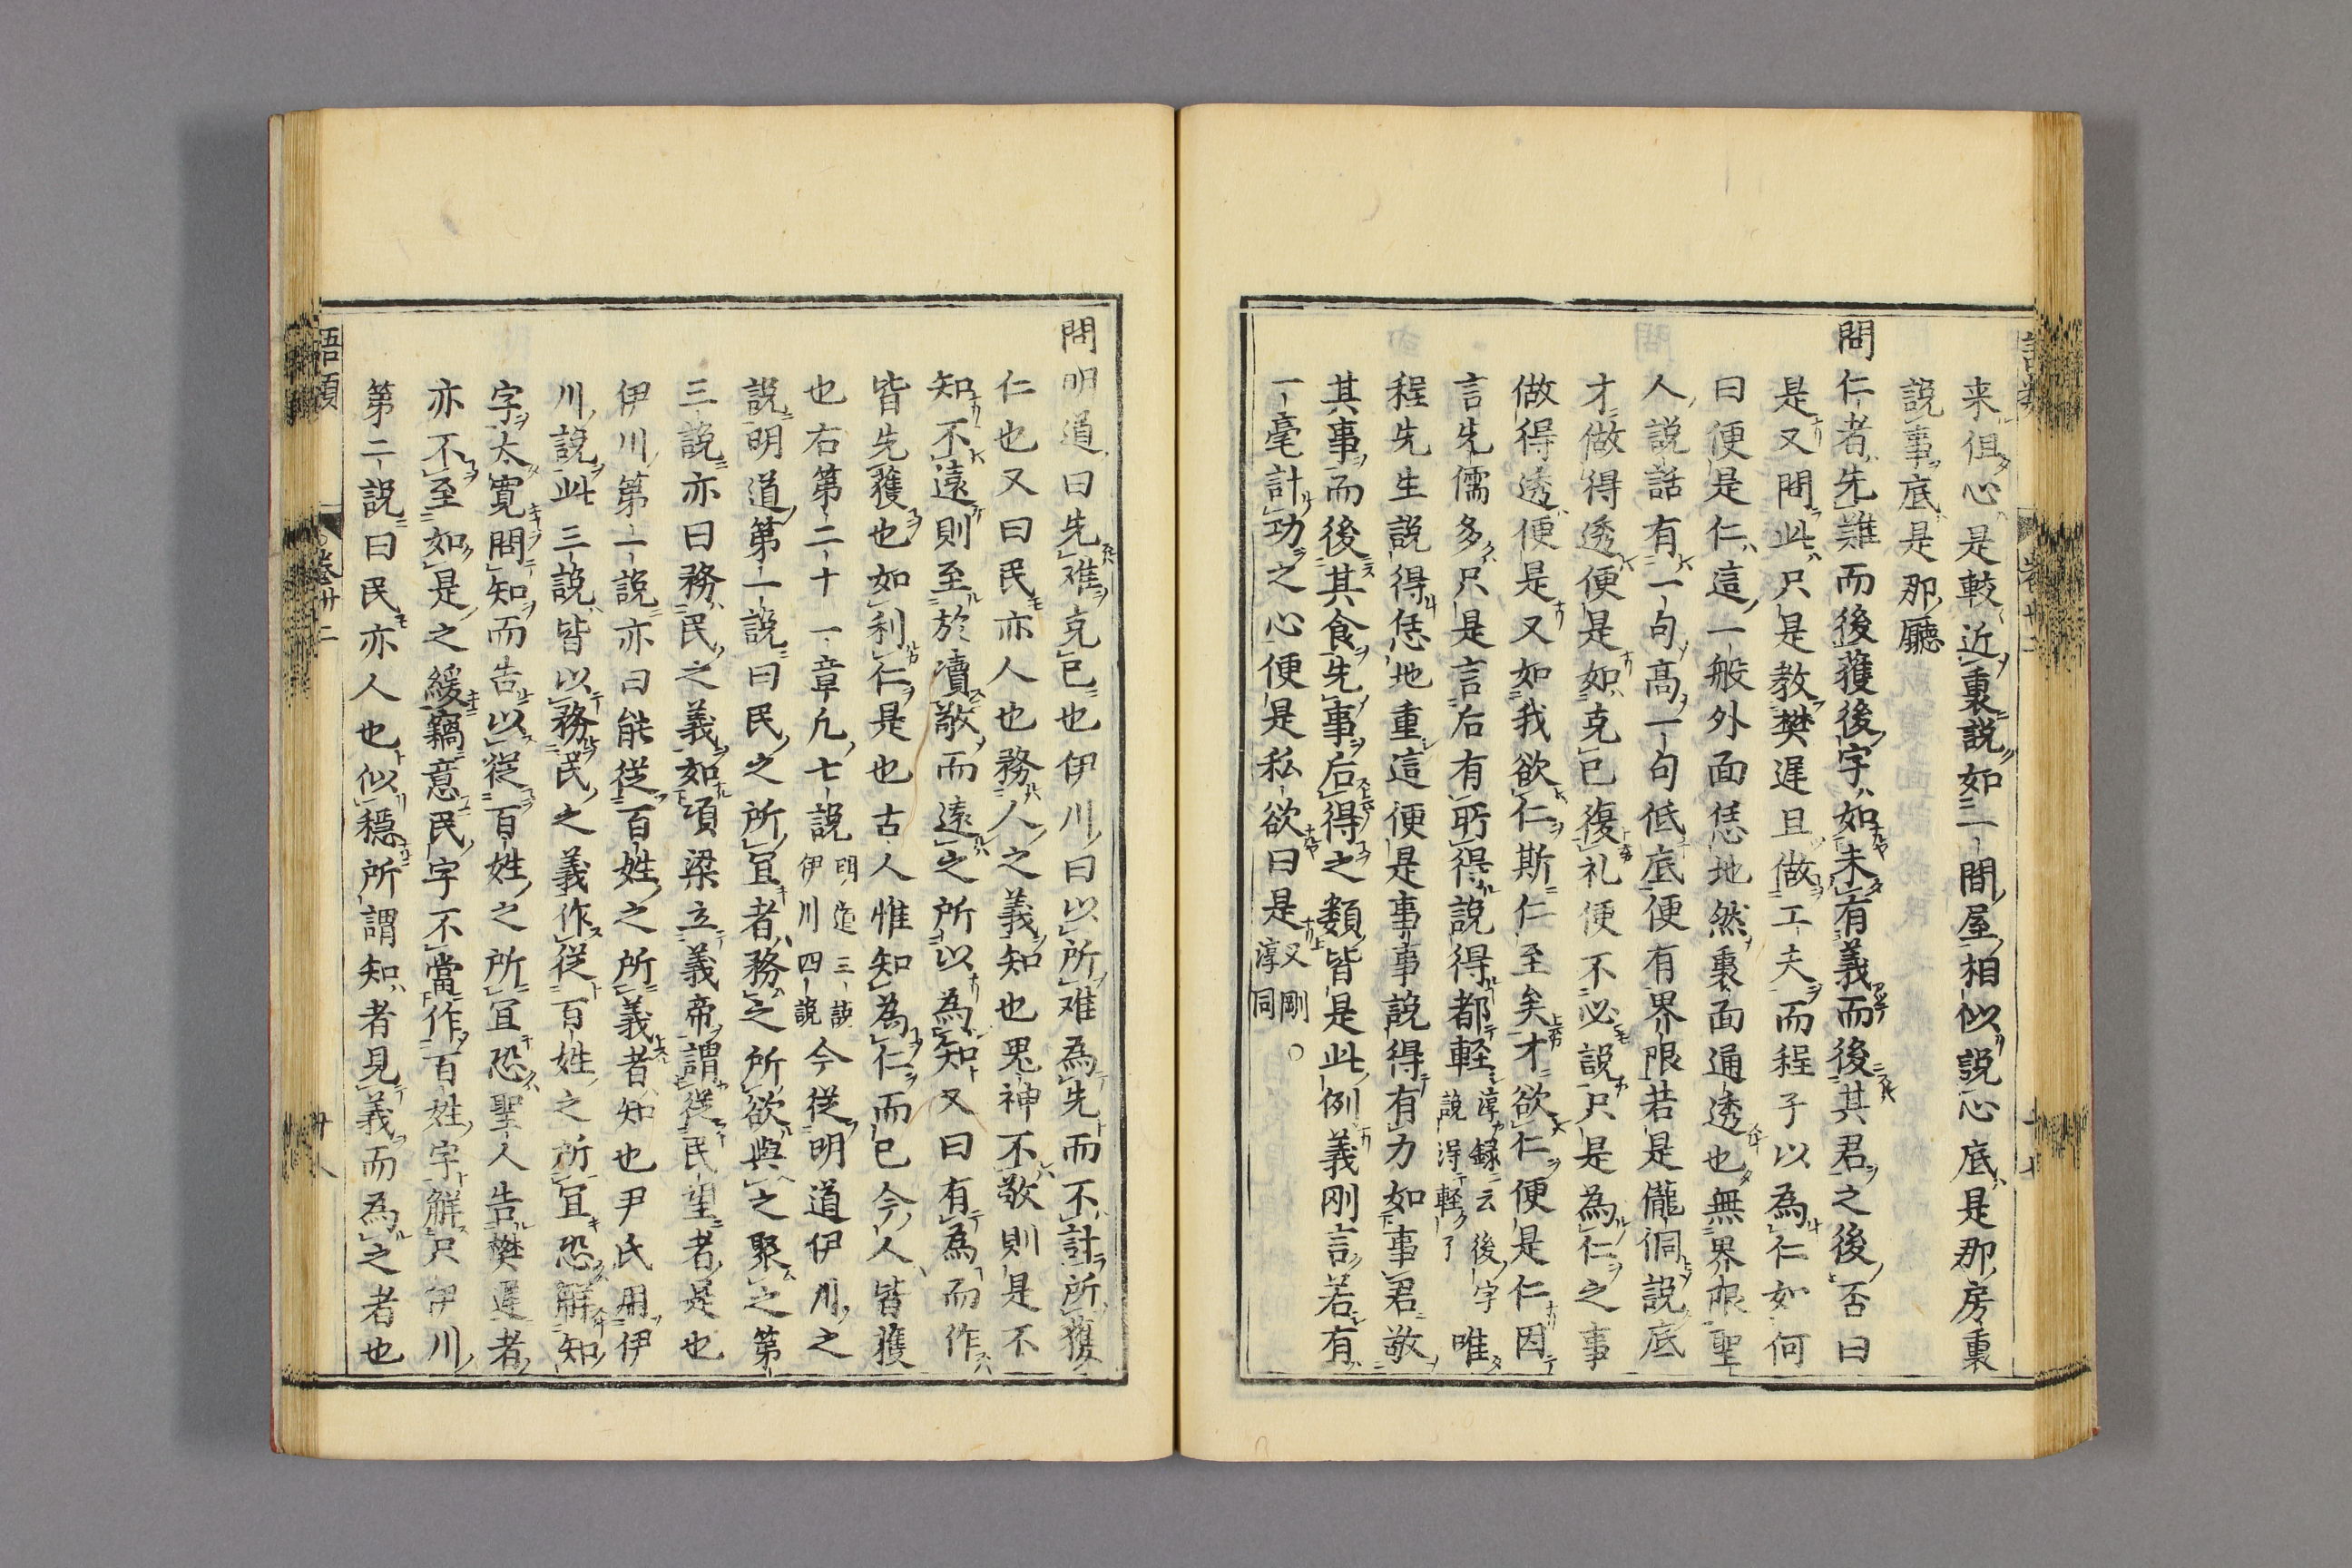 来但心是較近裏説如一間屋相似説心底是那房裏
説事底是那廳
問仁者先難而後獲後字如未有義而後其君之後否曰
是又問此只是教樊遅且做工夫而程子以為仁如何
曰便是仁這一般外面恁地然裏面通透也無界限聖
人説話有一句高一句低底便有界限若是儱侗説底
才做得透便是如克己復礼便不必説只是為仁之事
做得透便是又如我欲仁斯仁至矣才欲仁便是仁因
言先儒多只是言后有所得説得都軽淳録云後字説得軽了唯
程先生説得恁地重這便是事事説得有力如事君敬
其事而後其食先事后得之類皆是此例義剛言若有
一毫計功之心便是私欲曰是又剛淳同○
問明道曰先难克己也伊川曰以所难為先而不計所獲
仁也又曰民亦人也務人之義知也鬼神不敬則是不
知不遠則至於瀆敬而遠之所以為知又曰有為而作
皆先獲也如利仁是也古人惟知為仁而已今人皆獲
也右第二十一章凡七説明道三説伊川四説今従明道伊川之
説明道第一説曰民之所宜者務之所欲與之聚之第
三説亦曰務民之義如項梁立義帝謂従民望者是也
伊川第一説亦曰能従百姓之所義者知也尹氏用伊
川説此三説皆以務民之義作従百姓之所宜恐解知
字太寛問知而告以従百姓之所宜恐聖人告樊遅者
亦不至如是之緩竊意民字不當作百姓字解只伊川
第二説曰民亦人也似穏所謂知者見義而為之者也
語類 巻卅二 卅八